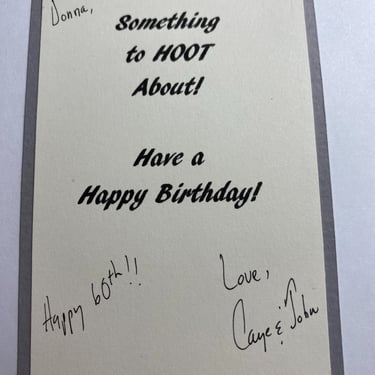 Donna,
Something
to HOOT
About!
Have a
Happy Birthday!
Happy 60th!!
Love,
Caye & John